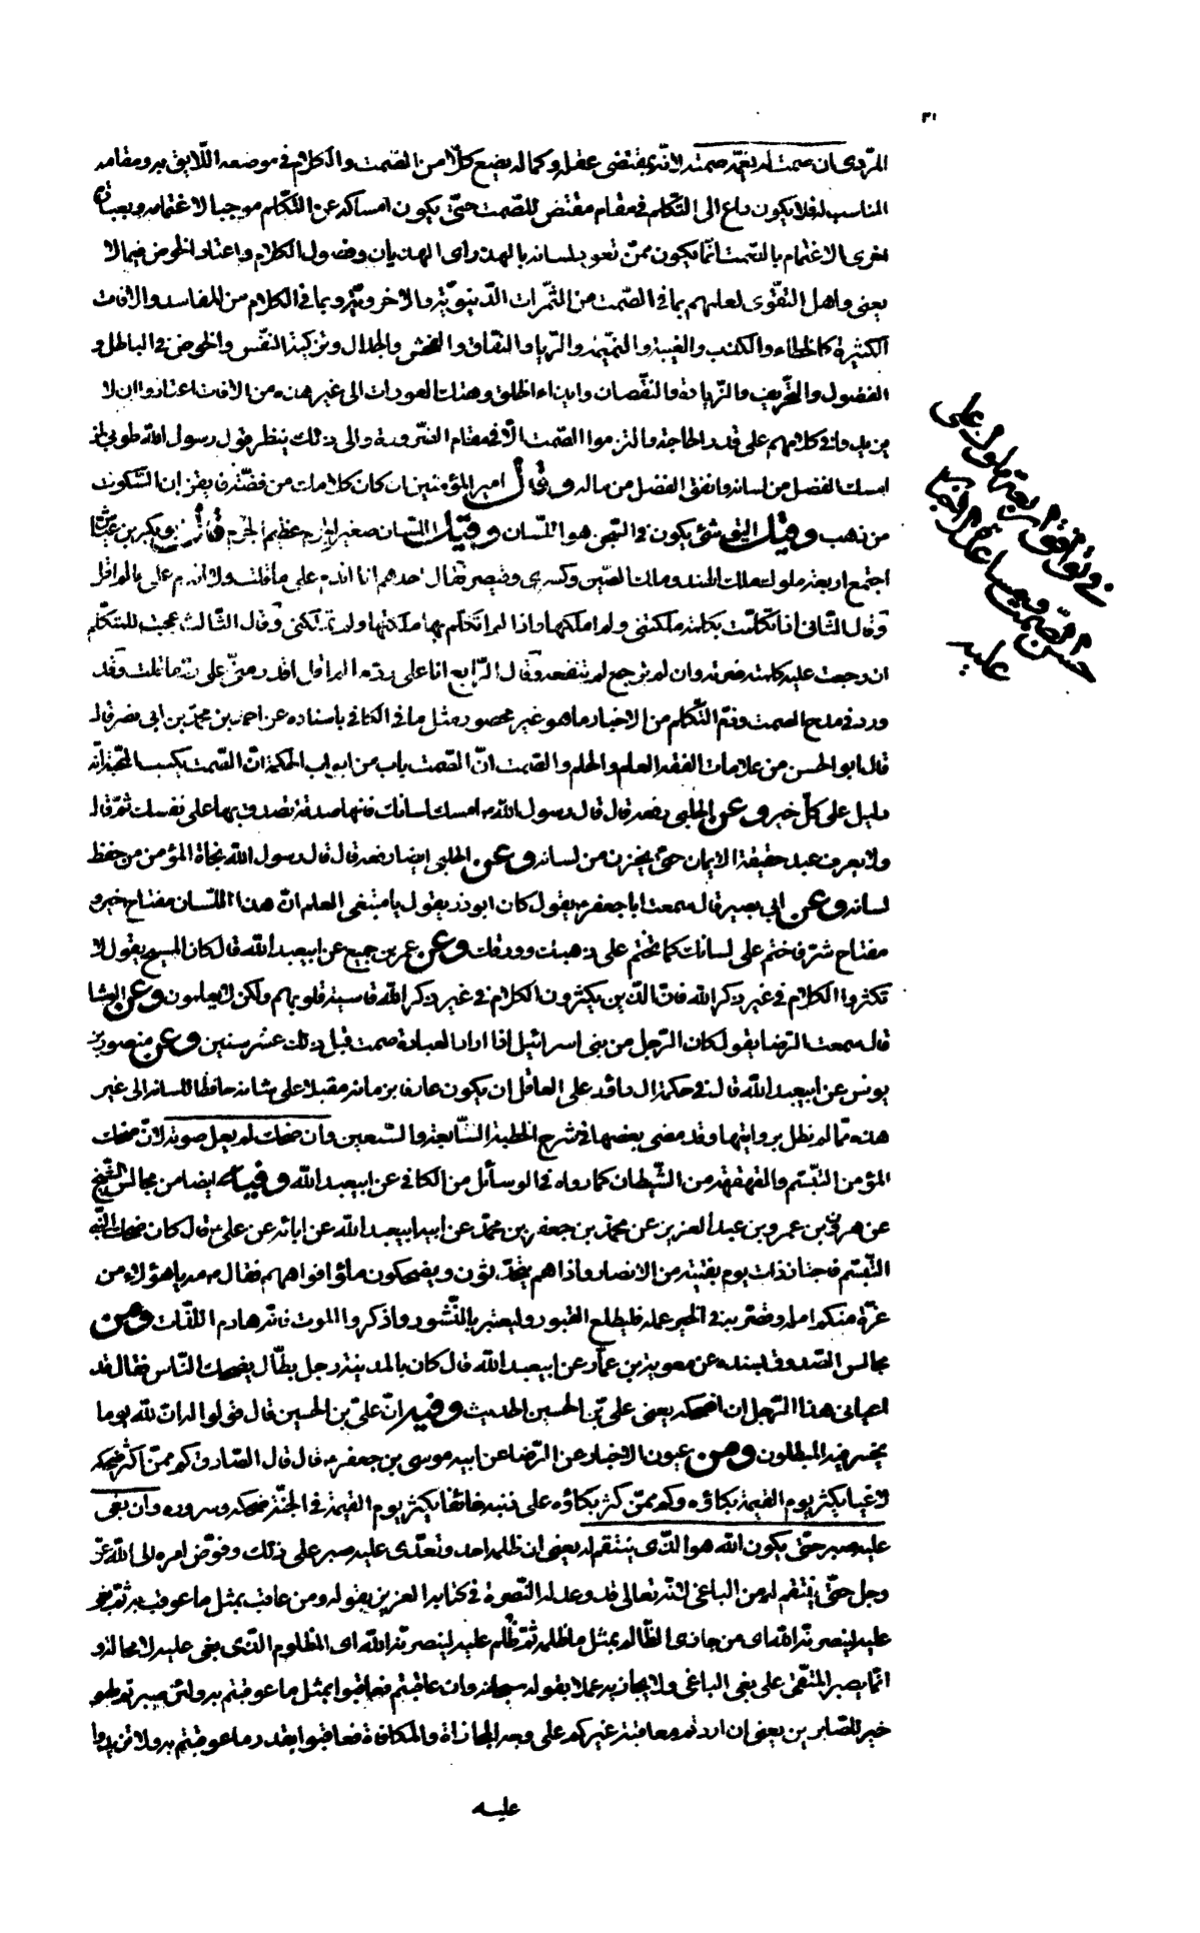 ٣١
المرّدى ان صمت لم يغمّه صمته لانّه بمقتضى عقله وكماله يضع كلّا من الصّمت والكلام فى موضعه اللّايق به ومقامه
المناسب له فلا يكون داع الى التّكلم فى مقام مقتض للصّمت حتّى يكون امساكه عن التّكلم موجبا لاغتمامه وبعبارة
اخرى الاغتمام بالصّمت انّما يكون ممّن تعود لسانه بالهذر اى الهذيان وفضول الكلام واعتاد الخوض فيما لا
يعنى واهل التّقوى لعلمهم بما فى الصّمت من الثّمرات الدّنيويّة والاخرويّة وبما فى الكلام من المفاسد والافات
الكثيرة كالخطاء والكذب والغيبة والنّميمة والرّيا والنّفاق والفحش والجدال وتزكية النّفس والخوض فى الباطل و
الفضول والتّحريف والزّيادة والنّقصان وايذاء الخلق وهتك العورات الى غير هذه من الافات اعتادوا ان لا
يزيدوا فى كلامهم على قدر الحاجة والتزموا الصّمت الّا فى مقام الضّرورة والى ذلك ينظر قول رسول الله طوبى لمن
امسك الفضل من لسانه وانفق الفضل من ماله وقال امير المؤمنين ان كان كلامك من فضّة فايقن ان السّكوت
من ذهب وقيل اليق شئ يكون فى السّجن هو اللّسان وقيل اللّسان صغير الجرم عظيم الجرم قال ابوبكر بن عيّاش
اجتمع اربعة ملوك ملك الهند وملك الصّين وكسرى وقيصر فقال احدهم انا اندم على ما قلت ولا اندم على ما لم اقل
وقال الثّانى اذا تكلّمت بكلمة ملكتنى ولم املكها واذا لم اتكلّم بها ملكتها ولم تملكنى وقال الثّالث عجبت للمتكلّم
ان رجعت عليه كلمته ضرته وان لم ترجع لم تنفعه وقال الرّابع انا على ردّ ما لم اقل اقدر منّى على ردّ ما قلت وقد
ورد فى مدح الصمت وذمّ التّكلم من الاخبار ما هو غير محصور مثل ما فى الكافى باسناده عن احمد بن محمّد بن ابى نصر قال
قال ابو الحسن من علامات الفقه العلم والحلم والصّمت انّ الصّمت باب من ابواب الحكمة انّ الصّمت يكسب المحبّة انّه
دليل على كلّ خير وعن الحلبى رفعه قال قال رسول الله ص امسك لسانك فانها صدقة تصدق بها على نفسك ثمّ قال
ولا يعرف عبد حقيقة الايمان حتّى يخزن من لسانه وعن الحلبى ايضا رفعه قال قال رسول الله نجاة المؤمن من حفظ
لسانه وعن ابى بصير قال سمعت ابا جعفر ع يقول كان ابوذر يقول يا مبتغى العلم انّ هذا اللّسان مفتاح خير و
مفتاح شرّ فاختم على لسانك كما تختم على ذهبك وورقك وعن عمر بن جميع عن ابيعبد الله قال كان المسيح يقول لا
تكثروا الكلام فى غير ذكر الله فانّ الذّين يكثرون الكلام فى غير ذكر الله قاسية قلوبهم ولكن لا يعلمون وعن الوشا
قال سمعت الرّضا يقول كان الرّجل من بنى اسرائيل اذا اراد العبادة صمت قبل ذلك عشر سنين وعن منصور بن
يونس عن ابيعبد الله قال فى حكمة ال داود على العاقل ان يكون عارفا بزمانه مقبلا على شانه حافظا للسانه الى غير
هذه ممّا لم نطل بروايتها وقد مضى بعضها فى شرح الخطبة السّابعة والسّبعين وان ضحك لم يعل صوته لانّ ضحك
المؤمن التّبسّم والقهقهة من الشّيطان كما رواه فى الوسائل من الكافى عن ابيعبد الله وفيه ايضا من مجالس الشّيخ
عن هرون بن عمرو بن عبد العزيز عن محمّد بن جعفر بن محمّد عن ابيه ابيعبد الله عن ابائه عن على ع قال كان ضحك النّبى
التّبسّم فاجتاز ذات يوم بفتية من الانصار واذا هم يتحدّثون ويضحكون ملؤ افواههم فقال مه يا هؤلاء من
غرّه منكم امله وقصر به فى الخير عمله فليطلع القبور وليعتبر بالنّشور واذكروا الموت فانّه هادم اللّذات ومن
مجالس الصّدوق بسنده عن معوية بن عمّار عن ابيعبد الله قال كان بالمدينة رجل بطّال يضحك النّاس فقال قد
اعيانى هذا الرّجل ان اضحكه يعنى علىّ بن الحسين الحديث وفيه انّ علىّ بن الحسين قال قولوا له انّ لله يوما
يخسر فيه المبطلون ومن عيون الاخبار عن الرّضا عن ابيه موسى بن جعفر ع قال قال الصّادق كم ممّن اكثر ضحكه
لاغيا يكثر يوم القيمة بكاؤه وكم ممّن كثر بكاؤه على ذنبه خائفا يكثر يوم القيمة فى الجنّة ضحكه وسروره وان بغى
عليه صبر حتّى يكون الله هو الذّى ينتقم له يعنى ان ظلمه احد وتعدّى عليه صبر على ذلك وفوّض امره الى الله عزّ
وجل حتّى ينتقم له من الباغى لانّه تعالى قد وعد له النّصرة فى كتابه العزيز بقوله ومن عاقب بمثل ما عوقب به ثمّ بغى
عليه لينصرنّه الله اى من جازى الظّالم بمثل ما ظلمه ثمّ ظلم عليه لينصرنّه الله اى المظلوم الذّى بغى عليه لا محالة و
انّما يصبر المتّقى على بغى الباغى ولا يجازيه عملا بقوله سبحانه وان عاقبتم فعاقبوا بمثل ما عوقبتم به ولئن صبرتم لهو
خير للصّابرين يعنى ان اردتم معاقبة غيركم على وجه المجازاة والمكافاة فعاقبوا بقدر ما عوقبتم به ولا تزيدوا
عليه
فى توافق اربعة ملوك على
حسن الصّمت
عليه